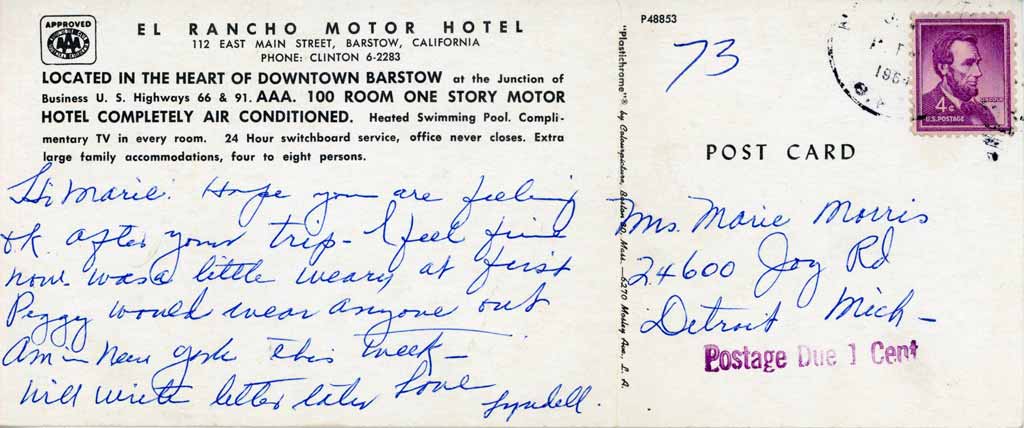 APPROVED
AAA
EL RANCHO MOTOR HOTEL
112 EAST MAIN STREET, BARSTOW, CALIFORNIA
PHONE: CLINTON 6-2283
LOCATED IN THE HEART OF DOWNTOWN BARSTOW at the Junction of
Business U. S. Highways 66 & 91. AAA. 100 ROOM ONE STORY MOTOR
HOTEL COMPLETELY AIR CONDITIONED. Heated Swimming Pool. Compli-
mentary TV in every room. 24 Hour switchboard service, office never closes. Extra
large family accommodations, four to eight persons.
Hi Marie. Hope you are feeling
ok after your trip - I feel fine
now. was a little weary at first
Peggy would wear anyone out
Am in New York this week -
Will write letter later Love
Lyndell.
"Plastichrome"® by Colourpicture, Boston 30, Mass. — 6270 Mosley Ave., L. A.
P48853
73
1964
4¢
LINCOLN
U.S. POSTAGE
POST CARD
Mrs. Marie Morris
24600 Joy Rd
Detroit Mich -
Postage Due 1 Cent